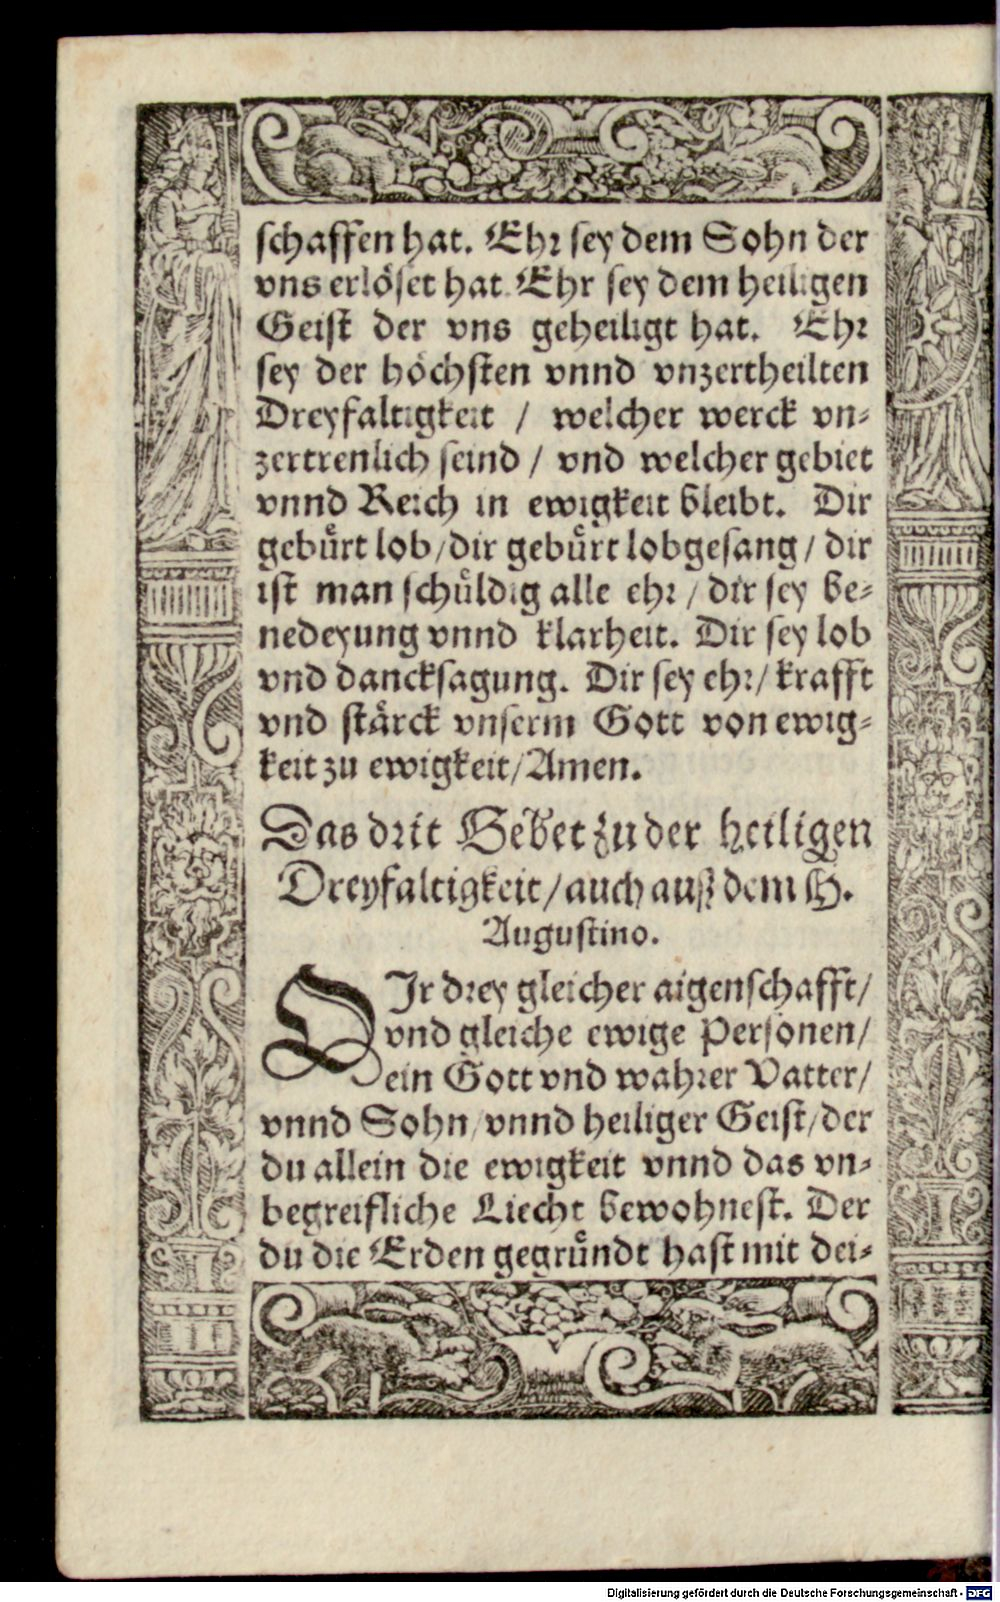 schaffen hat. Ehr sey dem Sohn der
vns erlöset hat. Ehr sey dem heiligen
Geist der vns geheiligt hat. Ehr
sey der höchsten vnnd vnzertheilten
Dreyfaltigkeit / welcher werck vn-
zertrenlich seind / vnd welcher gebiet
vnnd Reich in ewigkeit bleibt. Dir
gebürt lob / dir gebürt lobgesang / dir
ist man schüldig alle ehr / dir sey be-
nedeyung vnnd klarheit. Dir sey lob
vnd dancksagung. Dir sey ehr / krafft
vnd stärck vnserm Gott von ewig-
keit zu ewigkeit / Amen.
Das drit Gebet zu der heiligen
Dreyfaltigkeit / auch auß dem H.
Augustino.
O Ir drey gleicher aigenschafft /
vnd gleiche ewige Personen /
ein Gott vnd wahrer Vatter /
vnnd Sohn / vnnd heiliger Geist / der
du allein die ewigkeit vnnd das vn-
begreifliche Liecht bewohnest. Der
du die Erden gegründt hast mit dei-
Digitalisierung gefördert durch die Deutsche Forschungsgemeinschaft - DFG